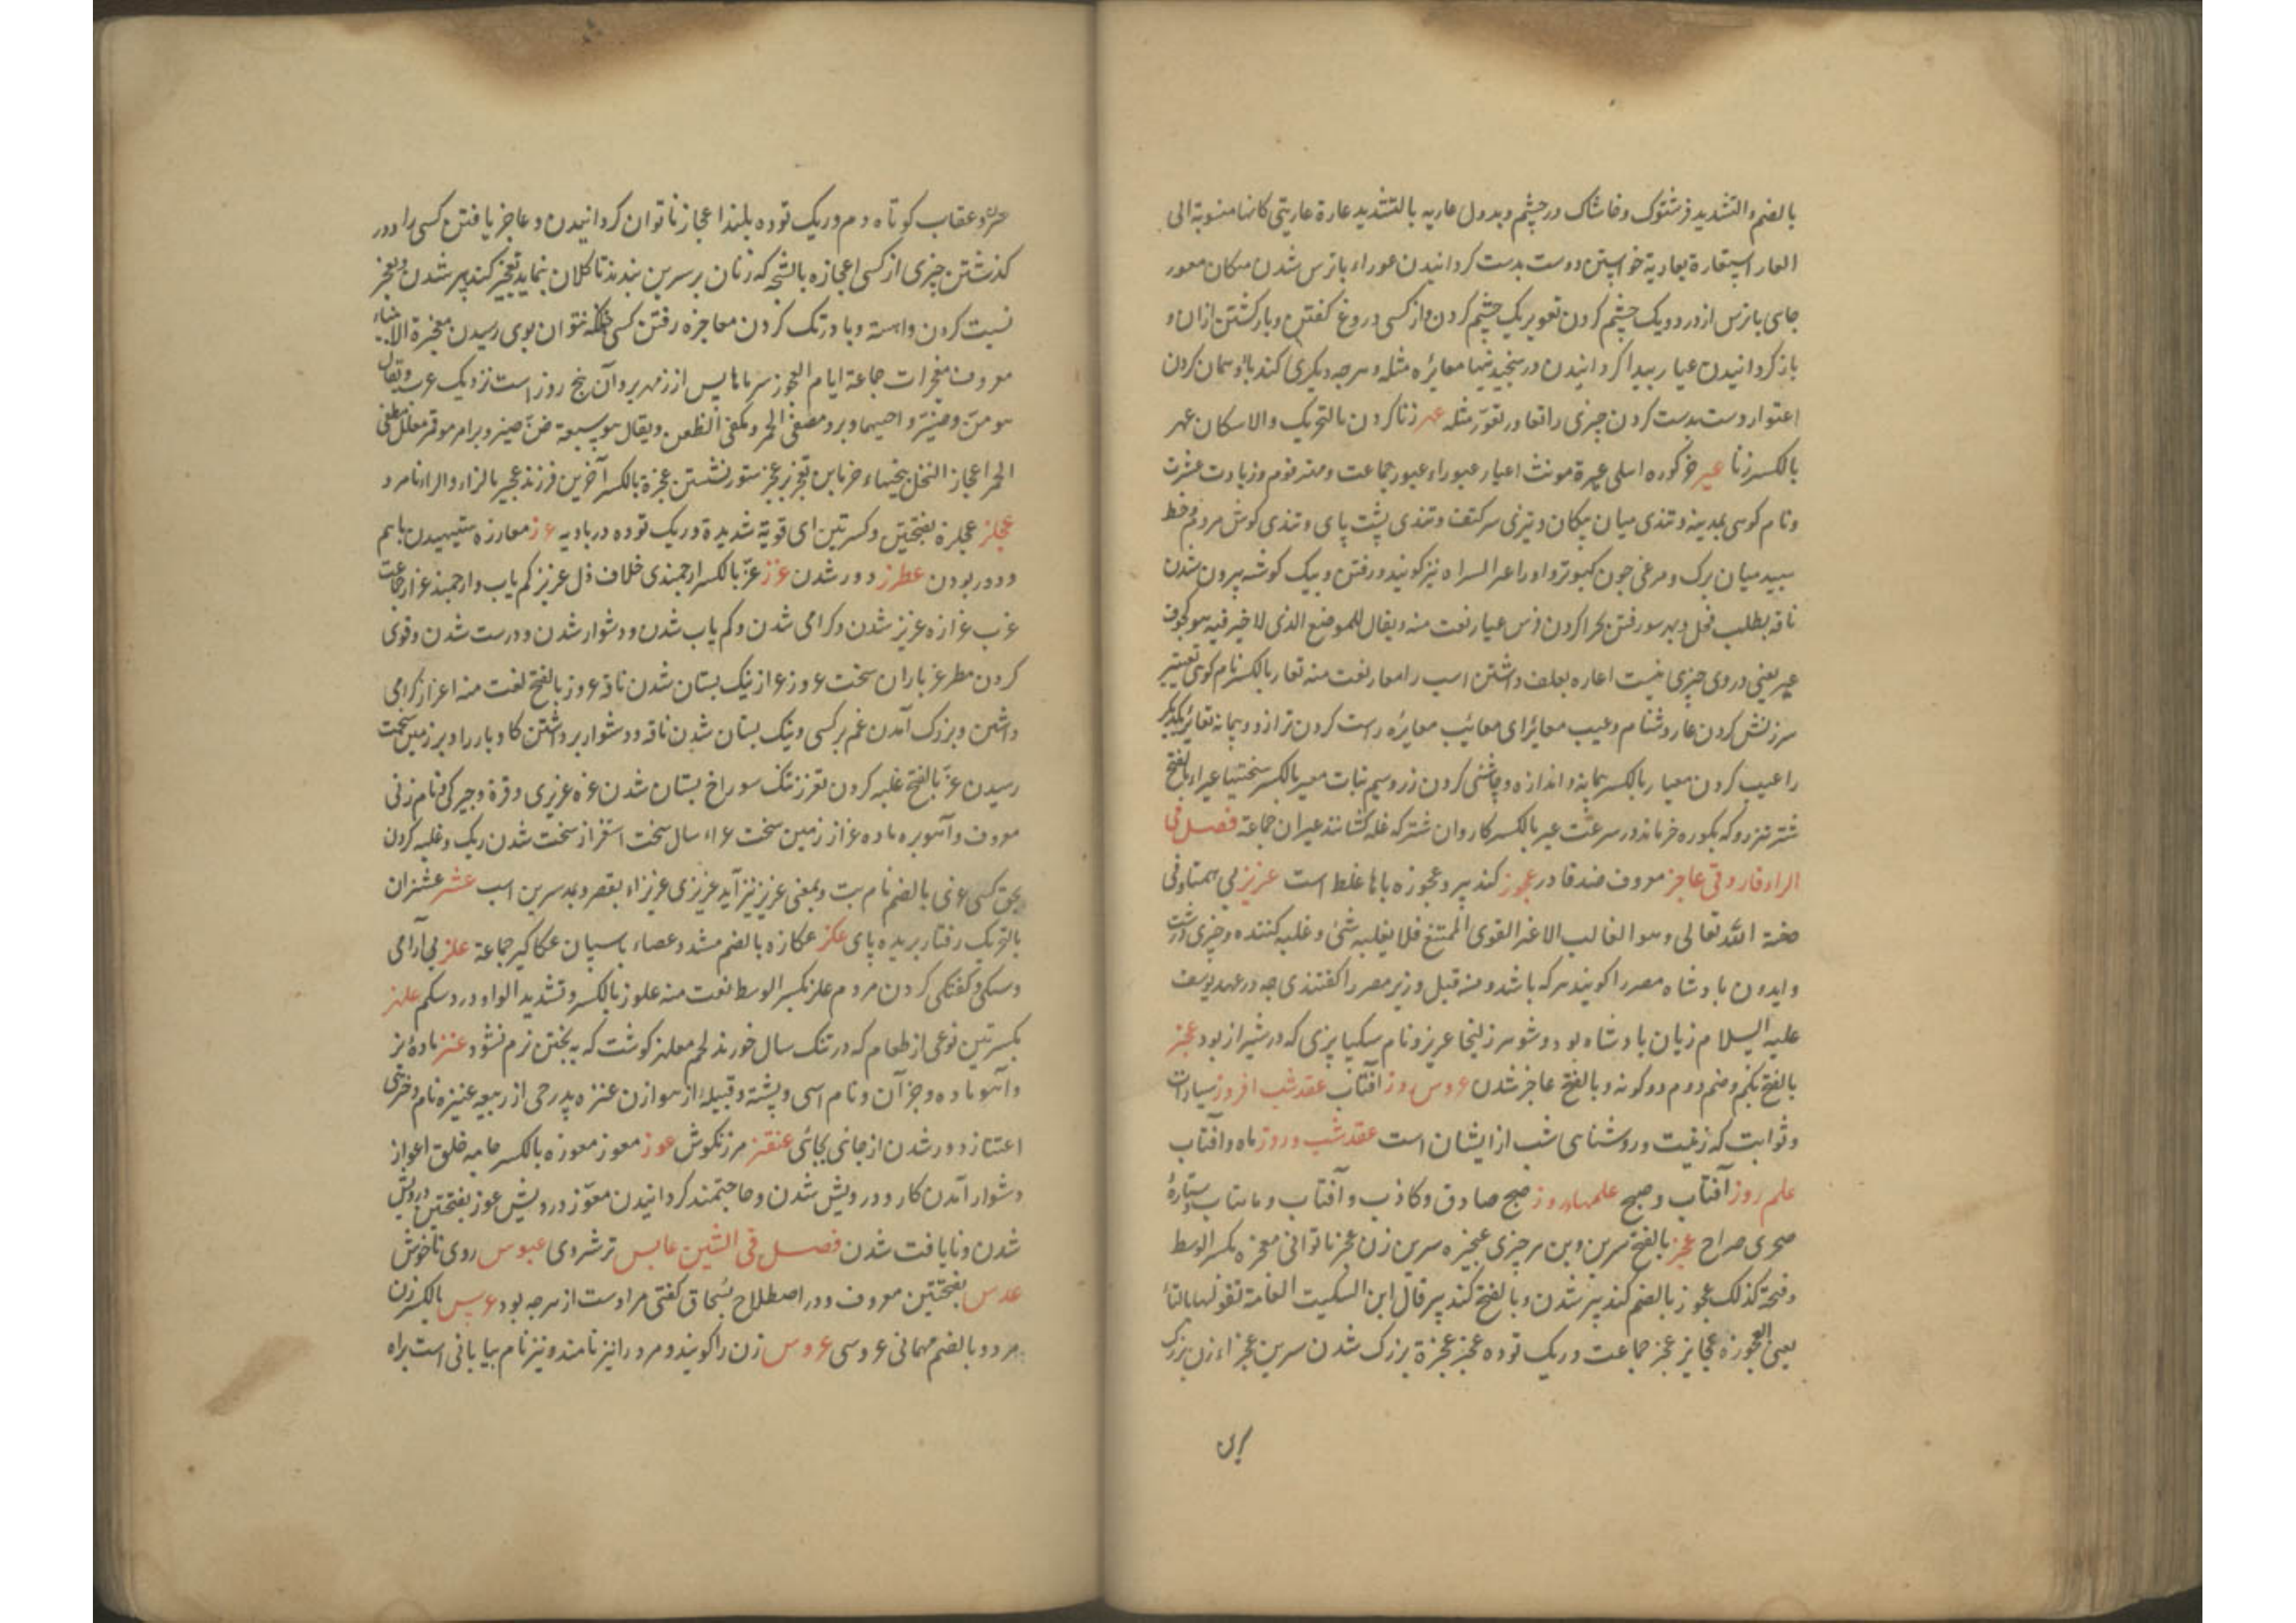 بالضم والتشدید فرشتوک وخاشاک در چشم وبددل عاریه بالتشدید عارة عاریتی کانها منسوبة الی
العار استعارة یعاریة خواستن ودست بدست کردانیدن عوراء باترس شدن مکان معور
جای باترس ازدرد ویک چشم کردن تعویر یک چشم کردن واز کسی دروغ کفتن وبازکشتن ازان و
باز کردانیدن عیار پیدا کردانیدن در سنجیدنیها معایره مثله وهرچه دیکری کند باو همان کردن
اعتوار دست بدست کردن چیزی را تعاور تعوّر مثله عهر زنا کردن بالتحریک والاسکان عهر
بالکسر زنا عیر خر کوره اهلی عیرة مونث اعیار عیوراء عیور جماعت ومهتر قوم
ونام کوهی بمدینه وتندی میان پیکان وتیزی سر کتف وتندی پشت پای وتندی کوش مردم وخط
سپید میان برک ومرغی چون کبوتر واورا عیر السراه نیز کویند ورفتن وبیک کوشه بیرون شدن
ناقه بطلب فحل وبهر سو رفتن وچرا کردن فرس عیار نعت منه ویقال للموضع الذی لاخیر فیه هو کجوف
عیر یعنی در وی چیزی نیست اعاره بعلف داشتن اسب را معار نعت منه تعار بالکسر نام کوهی تعییر
سرزنش کردن عار دشنام وعیب معائر ای معائب معایره راست کردن ترازو وپیمانه تعایر یکدیکر
را عیب کردن معیار بالکسر پیمانه واندازه وچاشنی کردن زر وسیم نبات معیر بالکسر
شتر تیزرو که بکوره خر ماند در سرعت عیر بالکسر کاروان شتر که غله کشانند عیران جماعة فصل فی
الزاء فارو قی عاجز معروف ضد قادر عجوز کنده پیر وعجوزه باها غلط است عزیز بی همتا وفی
صفة الله تعالی وهو الغالب الاعز القوی الممتنع فلا یغلبه شئ وغلبه کننده وچیزی درشت
وایدون بادشاه مصر را کویند هر که باشد ومنه قیل وزیر مصر را کفتندی چه در عهد یوسف
علیه السلام زیان بادشاه بود وشوهر زلیخا عزیز ونام سکیا پزی که در شیراز بود عجز
بالفتح یکم وضم دوم دو کونه وبالفتح عاجز شدن عروس روز آفتاب عقد شب افروز سیارات
وثوابت که زینت وروشنای شب از ایشان است عقد شب وروز ماه وآفتاب
علم روز آفتاب وصبح علمهاء روز صبح صادق وکاذب وآفتاب وماهتاب وستارهٔ
سحری صراح عجز بالفتح سرین وبن هر چیزی عجیزه سرین زن عجز ناتوانی معجزه بکسر الوسط
وفتحه کذلک عجوز بالضم کنده پیر شدن وبالفتح کنده پیر قال ابن السکیت العامة تقولها بالتاء
یعنی العجوزة عجایز عجز جماعت وریک توده عجز عجزة بزرک شدن سرین عجزاء زن بزرک
سرین
وعقاب کوتاه دم وریک توده بلند اعجاز ناتوان کردانیدن وعاجز یافتن کسی را ودر
کذشتن چیزی از کسی اعجازه بالشچه که زنان بر سرین بندند تا کلان نماید تعجیز کنده پیر شدن وبعجز
نسبت کردن وآهسته وبا درنک کردن معاجزه رفتن کسی چنانکه نتوان بوی رسیدن معجزة الانبیاء
معروف معجزات جماعة ایام العجوز سرماها پس از زمهریر وآن پنج روز است نزدیک عرب وتقال
هو صن وصنبر واخیهما وبر ومطفئ الجمر ومکفئ الظعن ویقال هو سبعة صن صنبر وبر امر موتمر معلل مطفی
الجمر اعجاز النخل بیخهاء خرما بن تعجز بر عجز ستور نشستن عجزة بالکسر آخرین فرزند عجیز بالزاء والراء نامرد
عجلز عجلزة بفتحتین وکسرتین ای قویة شدیدة وریک توده در بادیه عرز معارزه ستیهیدن باهم
ودور بودن عطرز دور شدن عزز عزّ بالکسر ارجمندی خلاف ذل عزیز کم یاب وارجمند عزاز جماعت
عزب عزازه عزیز شدن وکرامی شدن وکم یاب شدن ودشوار شدن ودرست شدن وقوی
کردن مطر عز باران سخت عزوز عزاز تنک پستان شدن ناقه عزوز بالفتح نعت منه اعزاز کرامی
داشتن وبزرک آمدن غم بر کسی وتنک پستان شدن ناقه ودشوار برداشتن کاو بار را وبر زمین سخت
رسیدن عزّ بالفتح غلبه کردن تعزز تنک سوراخ پستان شدن عزه عزیزی وقوة ونام زنی
معروف وآهو بره ماده عزاز زمین سخت عزاء سال سخت استعزاز سخت شدن ریک وغلبه کردن
بحق کسی عزی بالضم نام بت وبمعنی عزیز نیز آید عزیزی عزیزاء بقصر وبمد سرین اسب عشز عشزان
بالتحریک رفتار بریده پای عکز عکازه بالضم مشدد عصاء باسپان عکاکیز جماعة علز بی آرامی
وسبکی وکفتکی کردن مردم علز بکسر الوسط نعت منه علوز بالکسر وتشدید الواو درد شکم علهز
بکسرتین نوعی از طعام که در تنک سال خورند لحم معلهز کوشت که بپختن نرم نشود عنز مادهٔ بز
وآهو ماده وجز آن ونام اسپی وپشته وقبیله از هوازن عنزه پدر حی از ربیعه عنیزه نام دختری
اعتناز دور شدن از جائی بجائی عنقز مرزنکوش عوز معوز معوزه بالکسر جامه خلق اعواز
دشوار آمدن کار ودرویش شدن وحاجتمند کردانیدن معوّز درویش عوز بفتحتین درویش
شدن ونایافت شدن فصل فی الشین عابس ترش روی عبوس روی ناخوش
عدس بفتحتین معروف ودر اصطلاح بُسحاق کفتی مراد است از هرچه بود عرس بالکسر زن
مرد وبالضم مهمانی عروسی عروس زن را کویند ومرد را نیز نامند ونیز نام بیابانی است براه